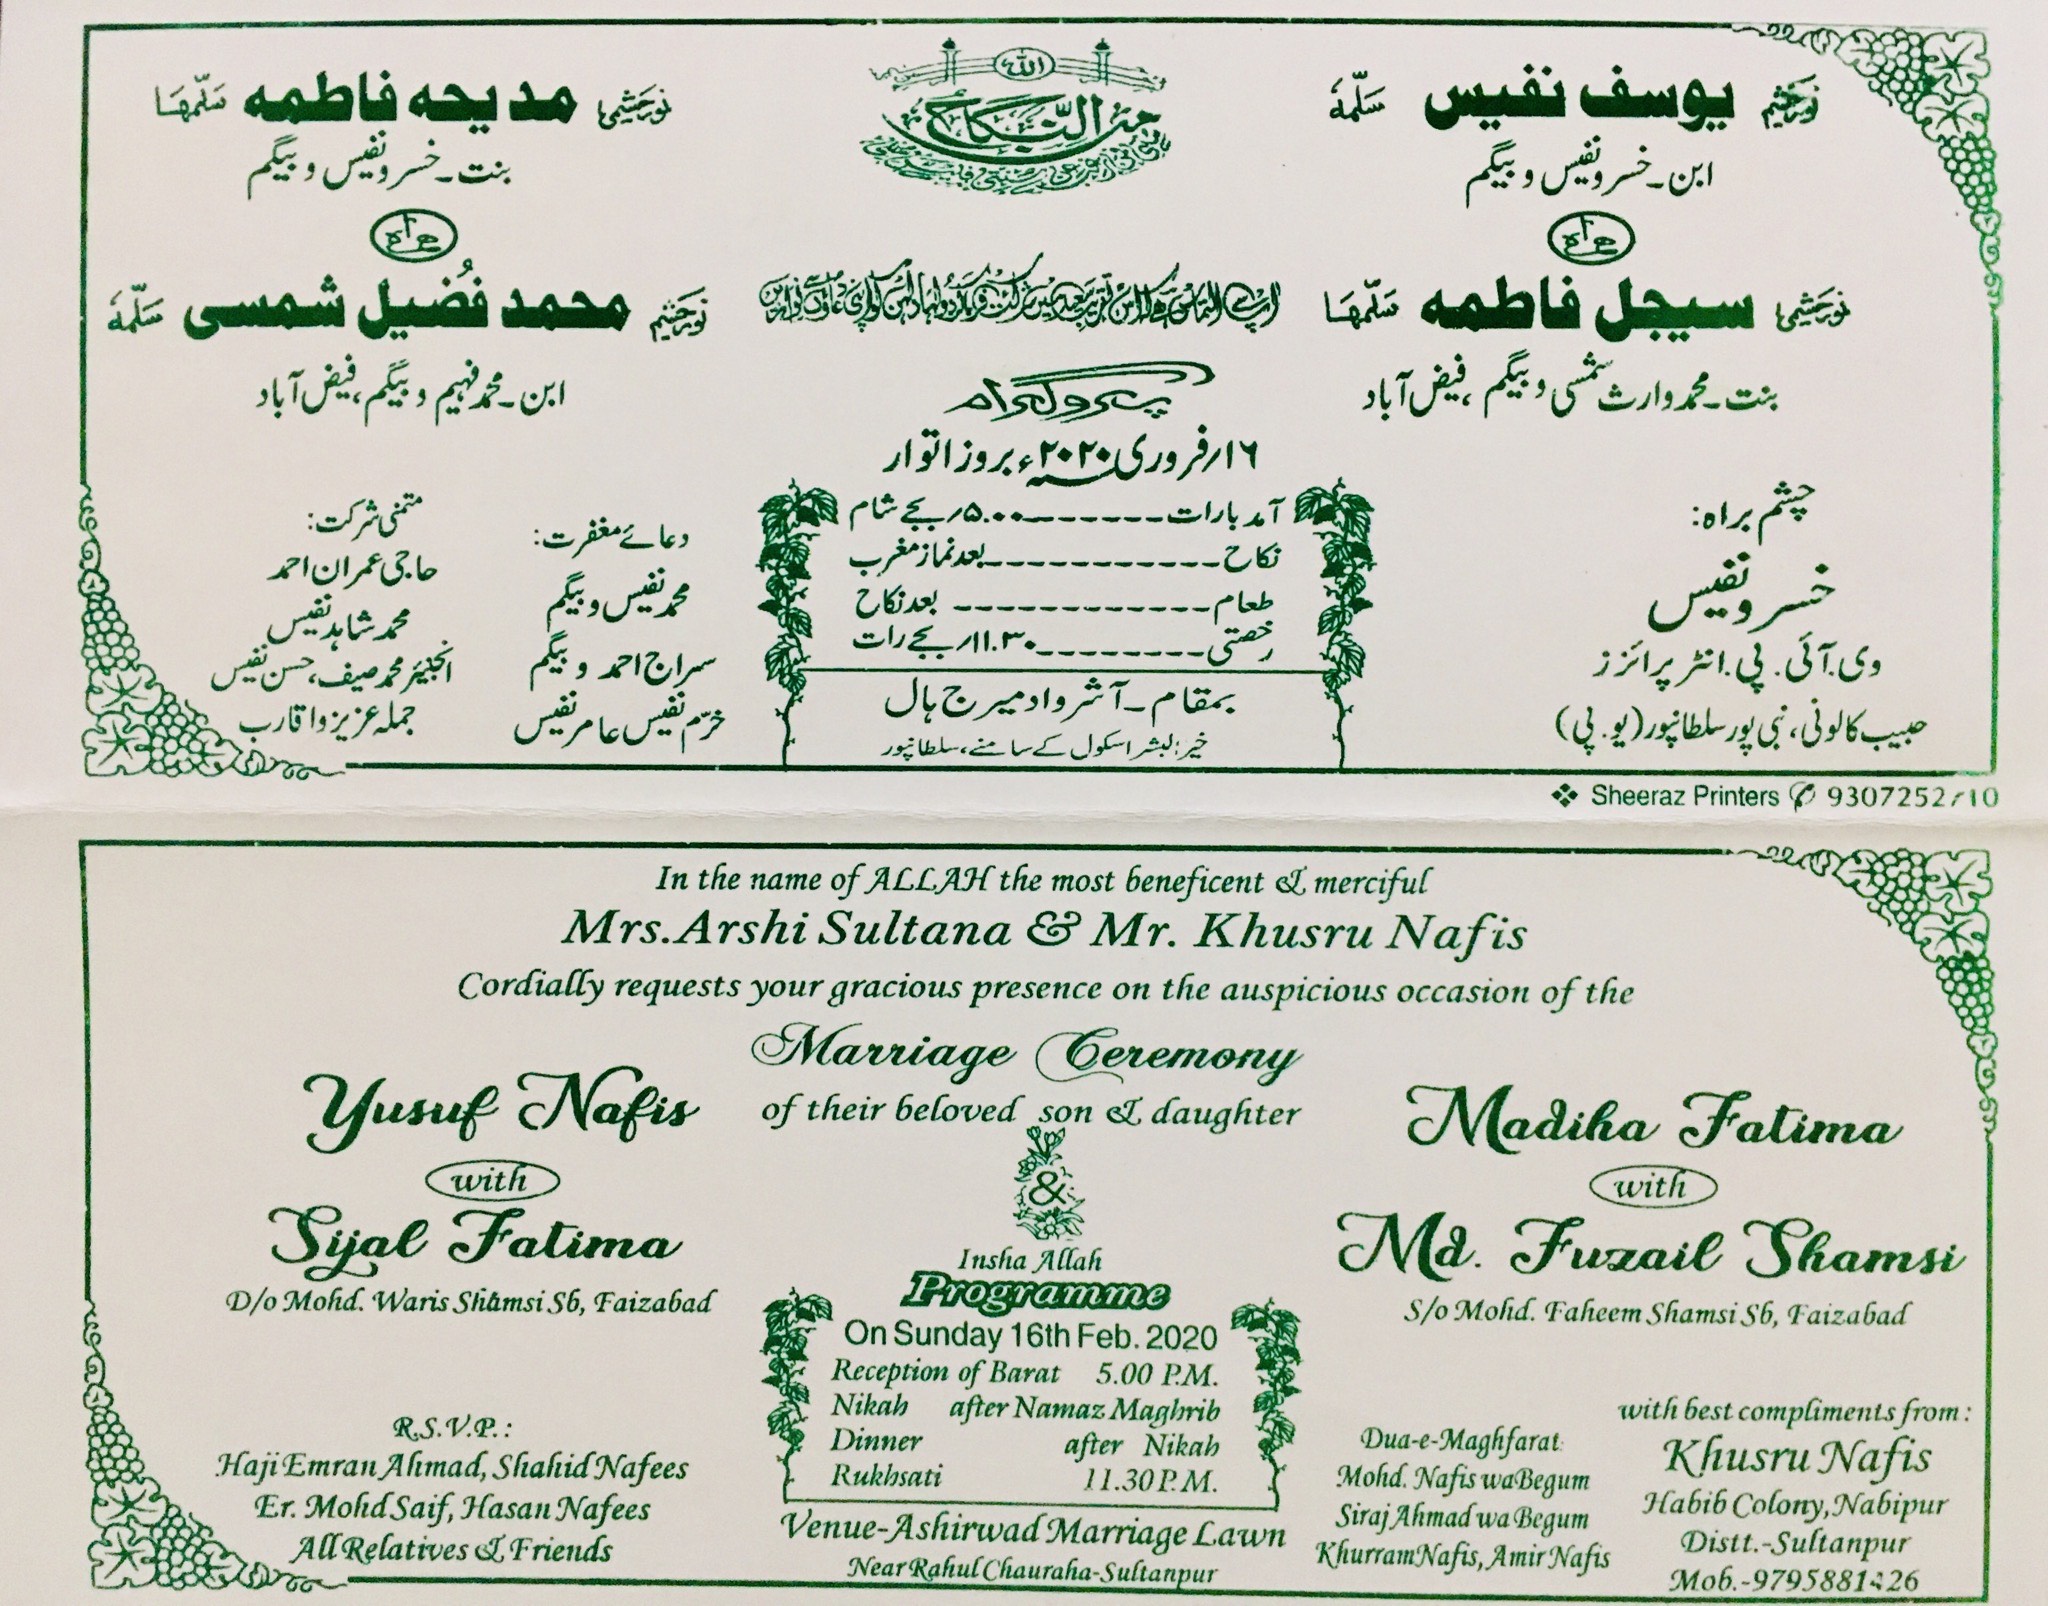 نور چشم یوسف نفیس سلّمہٗ
ابن۔ خسرو نفیس و بیگم
ہمراہ
نور چشمی سیجل فاطمہ سلّمہَا
بنت۔ محمد وارث شمسی و بیگم، فیض آباد
چشم براہ:
خسرو نفیس
وی.آئی.پی.انٹرپرائزز
حبیب کالونی، نبی پور سلطانپور (یو.پی)
اللہ
النِّکَاحُ
پروگرام
۱۶/فروری ۲۰۲۰ء بروز اتوار
آمد بارات-------۵.۰۰/بجے شام
نکاح------------بعد نماز مغرب
طعام------------ بعد نکاح
رخصتی--------۱۱.۳۰/بجے رات
بمقام۔ آشرواد میرج ہال
اسکول کے سامنے، سلطانپور
نور چشمی مدیحہ فاطمہ سلّمہَا
بنت۔ خسرو نفیس و بیگم
ہمراہ
نور چشم محمد فُضیل شمسی سلّمہٗ
ابن۔ محمد فہیم و بیگم، فیض آباد
دعائے مغفرت:
محمد نفیس و بیگم
سراج احمد و بیگم
خرّم نفیس عامر نفیس
متمنی شرکت:
حاجی عمران احمد
محمد شاہد نفیس
انجینئر محمد صیف، حسن نفیس
جملہ عزیز و اقارب
❖ Sheeraz Printers ✆
In the name of ALLAH the most beneficent & merciful
Mrs.Arshi Sultana & Mr. Khusru Nafis
Cordially requests your gracious presence on the auspicious occasion of the
Marriage Ceremony
of their beloved son & daughter
Yusuf Nafis
with
Sijal Fatima
D/o Mohd. Waris Shamsi Sb, Faizabad
&
Madiha Fatima
with
Md. Fuzail Shamsi
S/o Mohd. Faheem Shamsi Sb, Faizabad
Insha Allah
Programme
On Sunday 16th Feb. 2020
Reception of Barat 5.00 P.M.
Nikah after Namaz Maghrib
Dinner after Nikah
Rukhsati 11.30 P.M.
Venue-Ashirwad Marriage Lawn
Near Rahul Chauraha-Sultanpur
R.S.V.P. :
Haji Emran Ahmad, Shahid Nafees
Er. Mohd Saif, Hasan Nafees
All Relatives & Friends
Dua-e-Maghfarat
Mohd. Nafis wa Begum
Siraj Ahmad wa Begum
Khurram Nafis, Amir Nafis
with best compliments from :
Khusru Nafis
Habib Colony, Nabipur
Distt.-Sultanpur
Mob.-